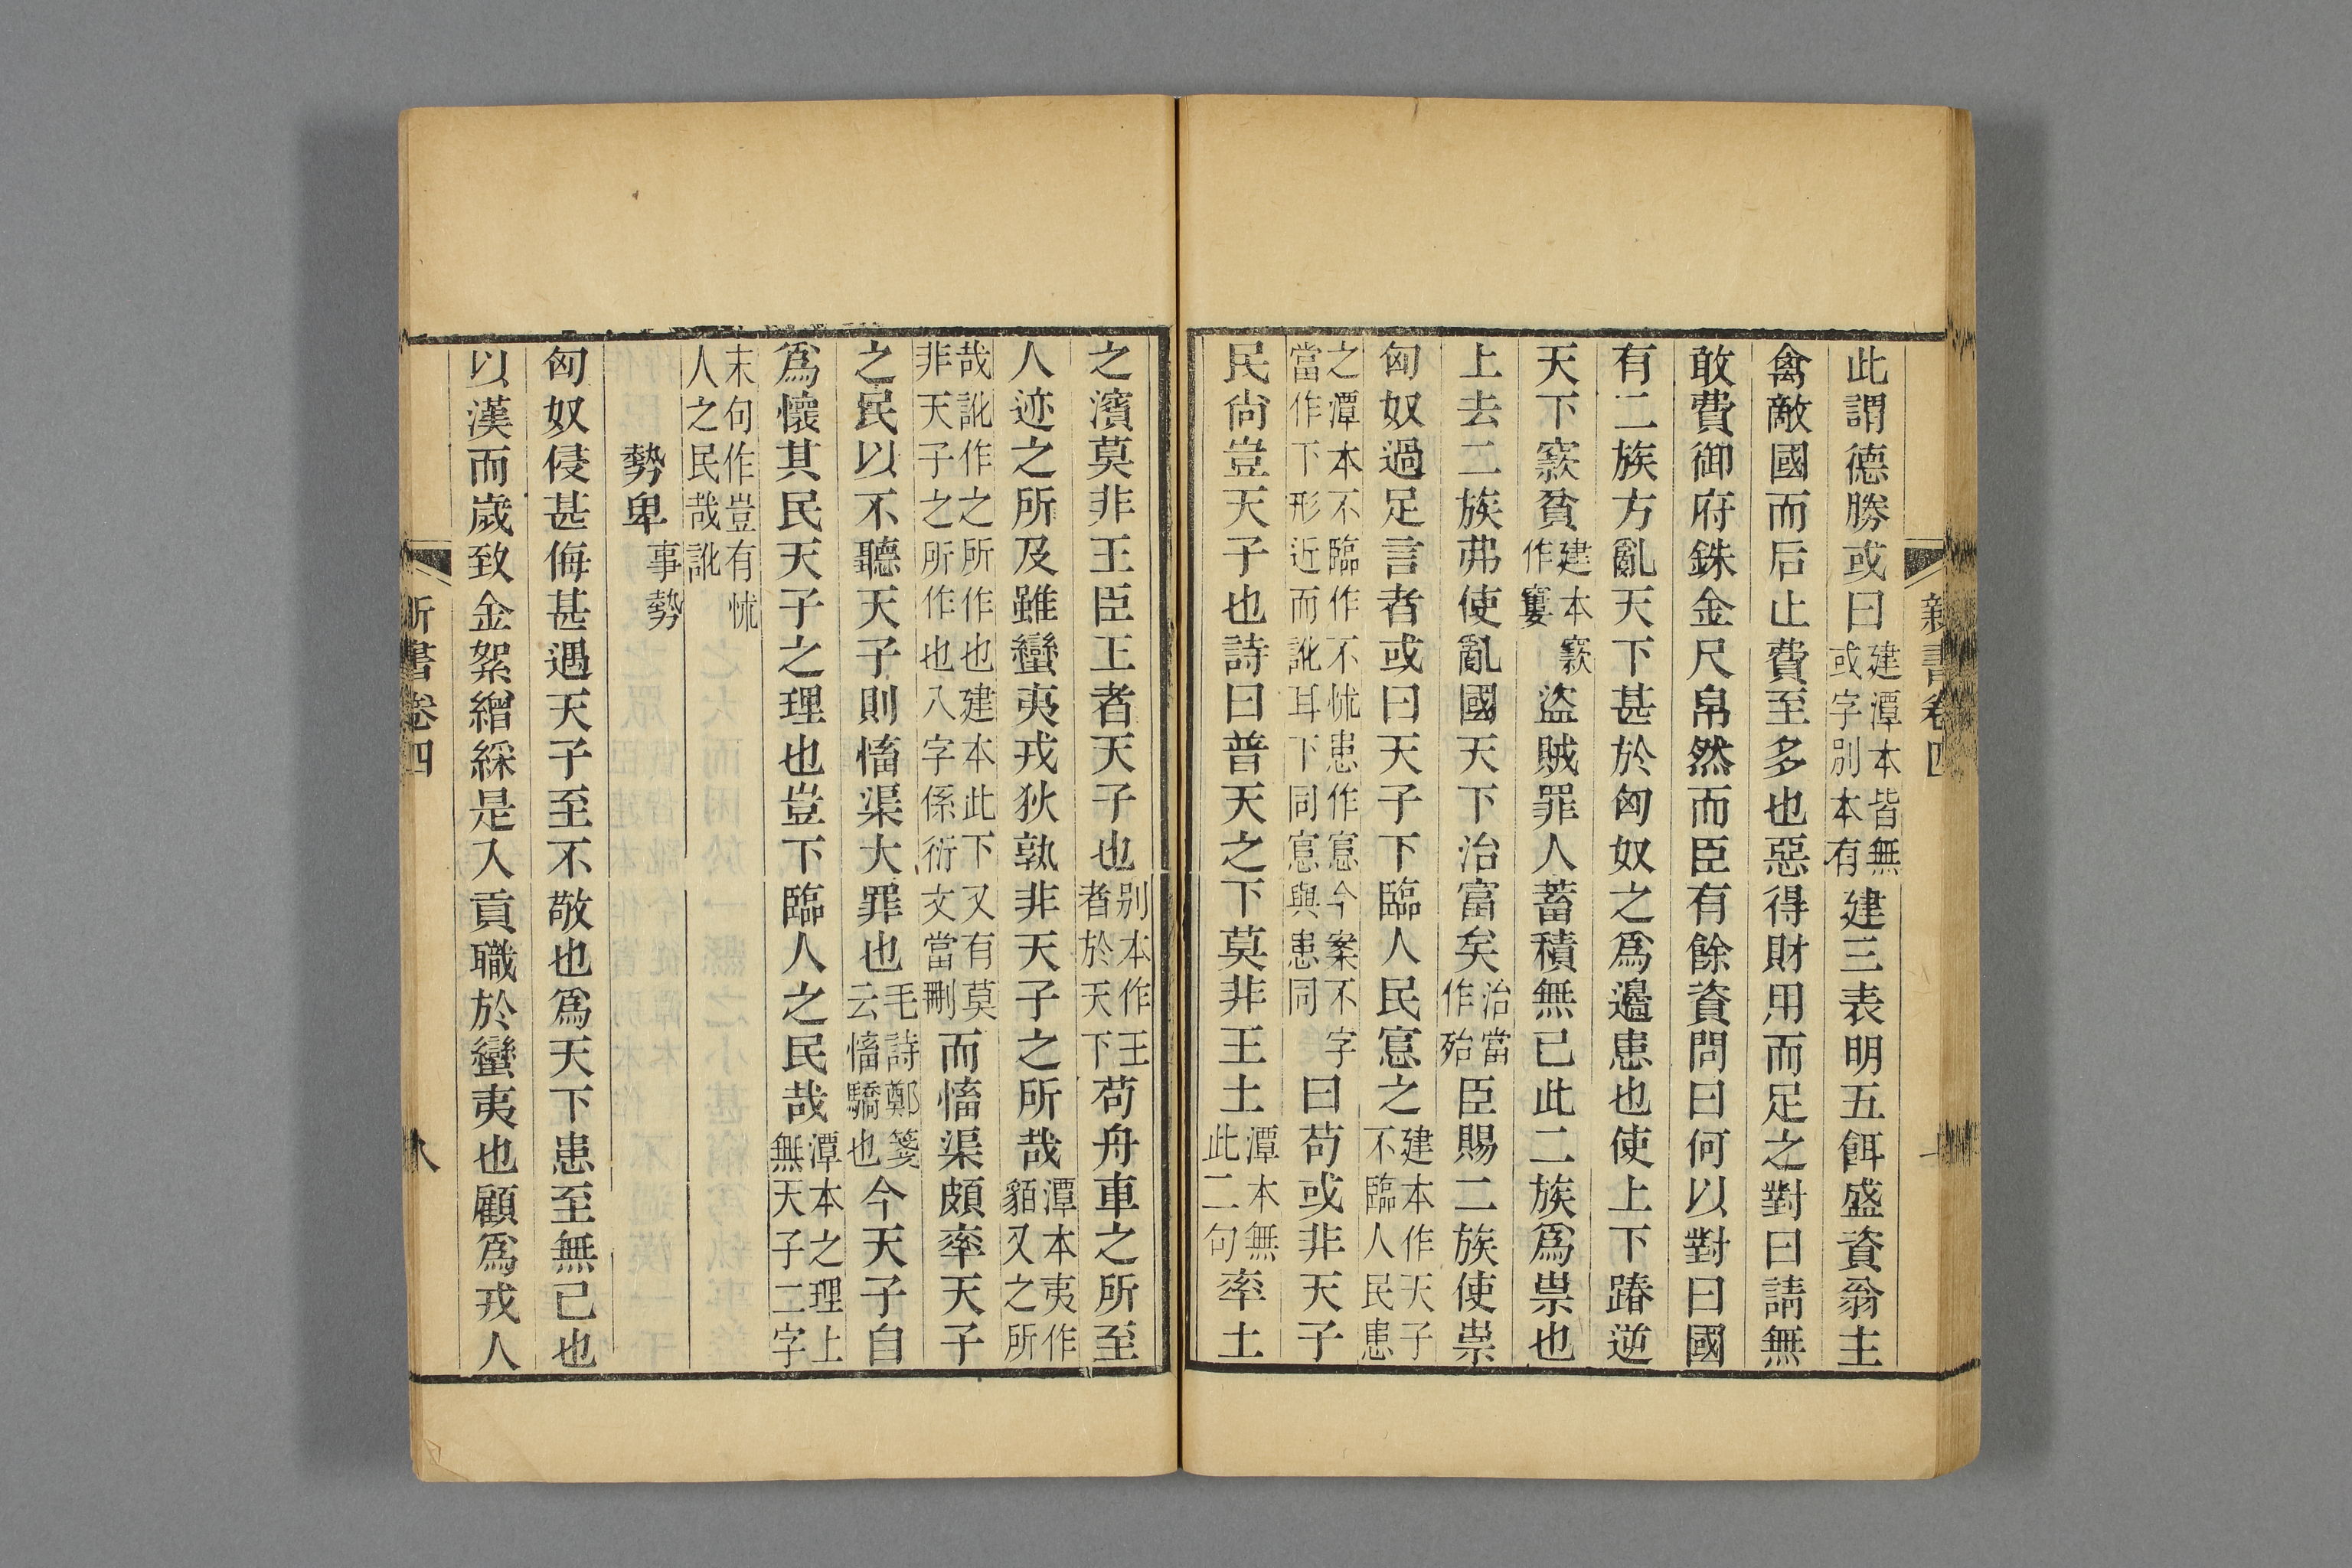 新書卷四
此謂德勝或曰建潭本皆無或字別本有建三表明五餌盛資翁主
禽敵國而后止費至多也惡得財用而足之對曰請無
敢費御府銖金尺帛然而臣有餘資問曰何以對曰國
有二族方亂天下甚於匈奴之爲邊患也使上下踳逆
天下窾貧建本窾作窶盜賊罪人蓄積無已此二族爲祟也
上去二族弗使亂國天下治富矣治當作殆臣賜二族使祟
匈奴過足言者或曰天子下臨人民悹之建本作天子不臨人民患
之潭本不臨作不怵患作悹今案不字當作下形近而訛耳下同悹與患同曰苟或非天子
民尙豈天子也詩曰普天之下莫非王土潭本無此二句率土
之濱莫非王臣王者天子也別本作王者於天下苟舟車之所至
人迹之所及雖蠻夷戎狄孰非天子之所哉潭本夷作貊又之所
哉訛作之所作也建本此下又有莫非天子之所作也八字係衍文當刪而慉渠頗率天子
之民以不聽天子則慉渠大罪也毛詩鄭箋云慉驕也今天子自
爲懷其民天子之理也豈下臨人之民哉潭本之理上無天子二字
末句作豈有怵人之民哉訛
勢卑事勢
匈奴侵甚侮甚遇天子至不敬也爲天下患至無已也
以漢而歲致金絮繒綵是入貢職於蠻夷也顧爲戎人
新書卷四
八